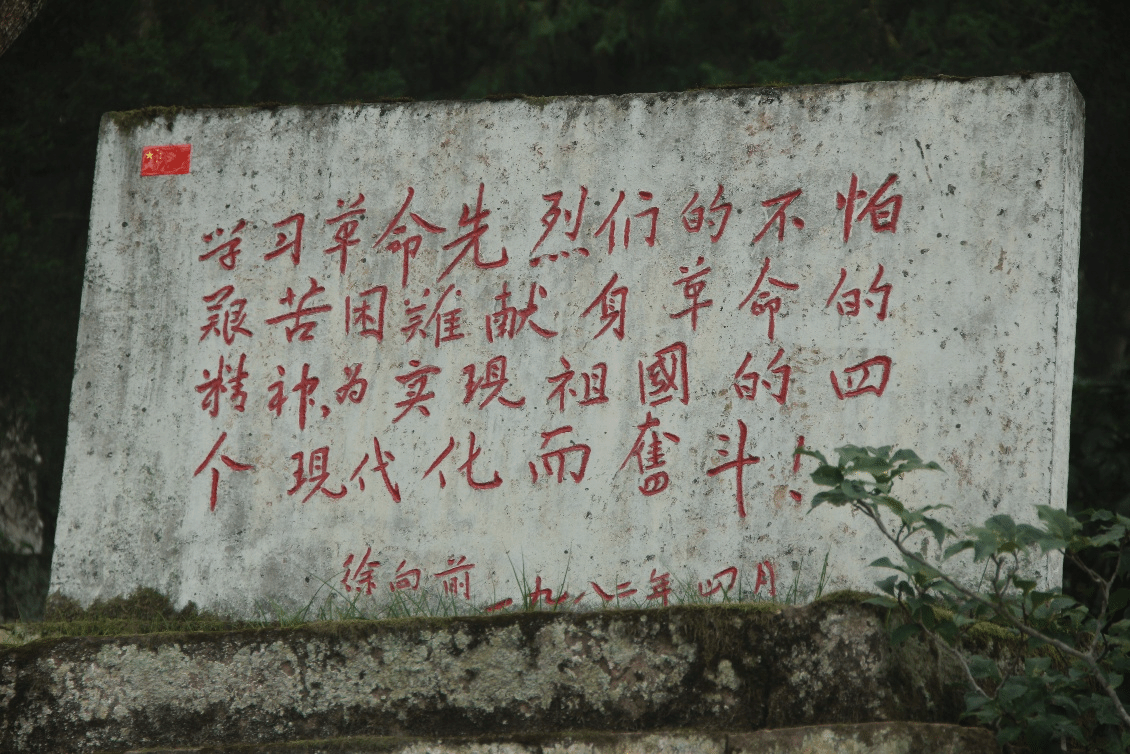 学习革命先烈们的不怕
艰苦困難献身革命的
精神,为实现祖國的四
个现代化而奮斗!
徐向前 一九八二年四月